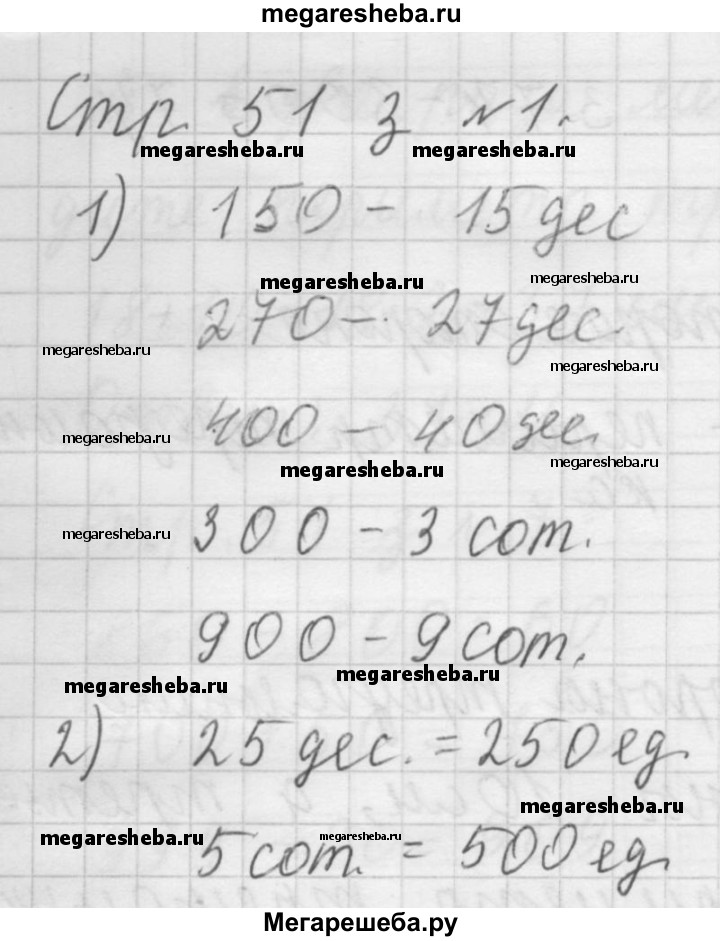 megaresheba.ru
Стр 51 з №1.
megaresheba.ru megaresheba.ru
1) 150 - 15 дес
megaresheba.ru megaresheba.ru
270 - 27 дес
megaresheba.ru megaresheba.ru
400 - 40 дес.
megaresheba.ru megaresheba.ru megaresheba.ru
300 - 3 сот.
megaresheba.ru
900 - 9 сот.
megaresheba.ru megaresheba.ru
2) 25 дес. = 250 ед.
megaresheba.ru
5 сот. = 500 ед.
megaresheba.ru megaresheba.ru
Мегарешеба.ру